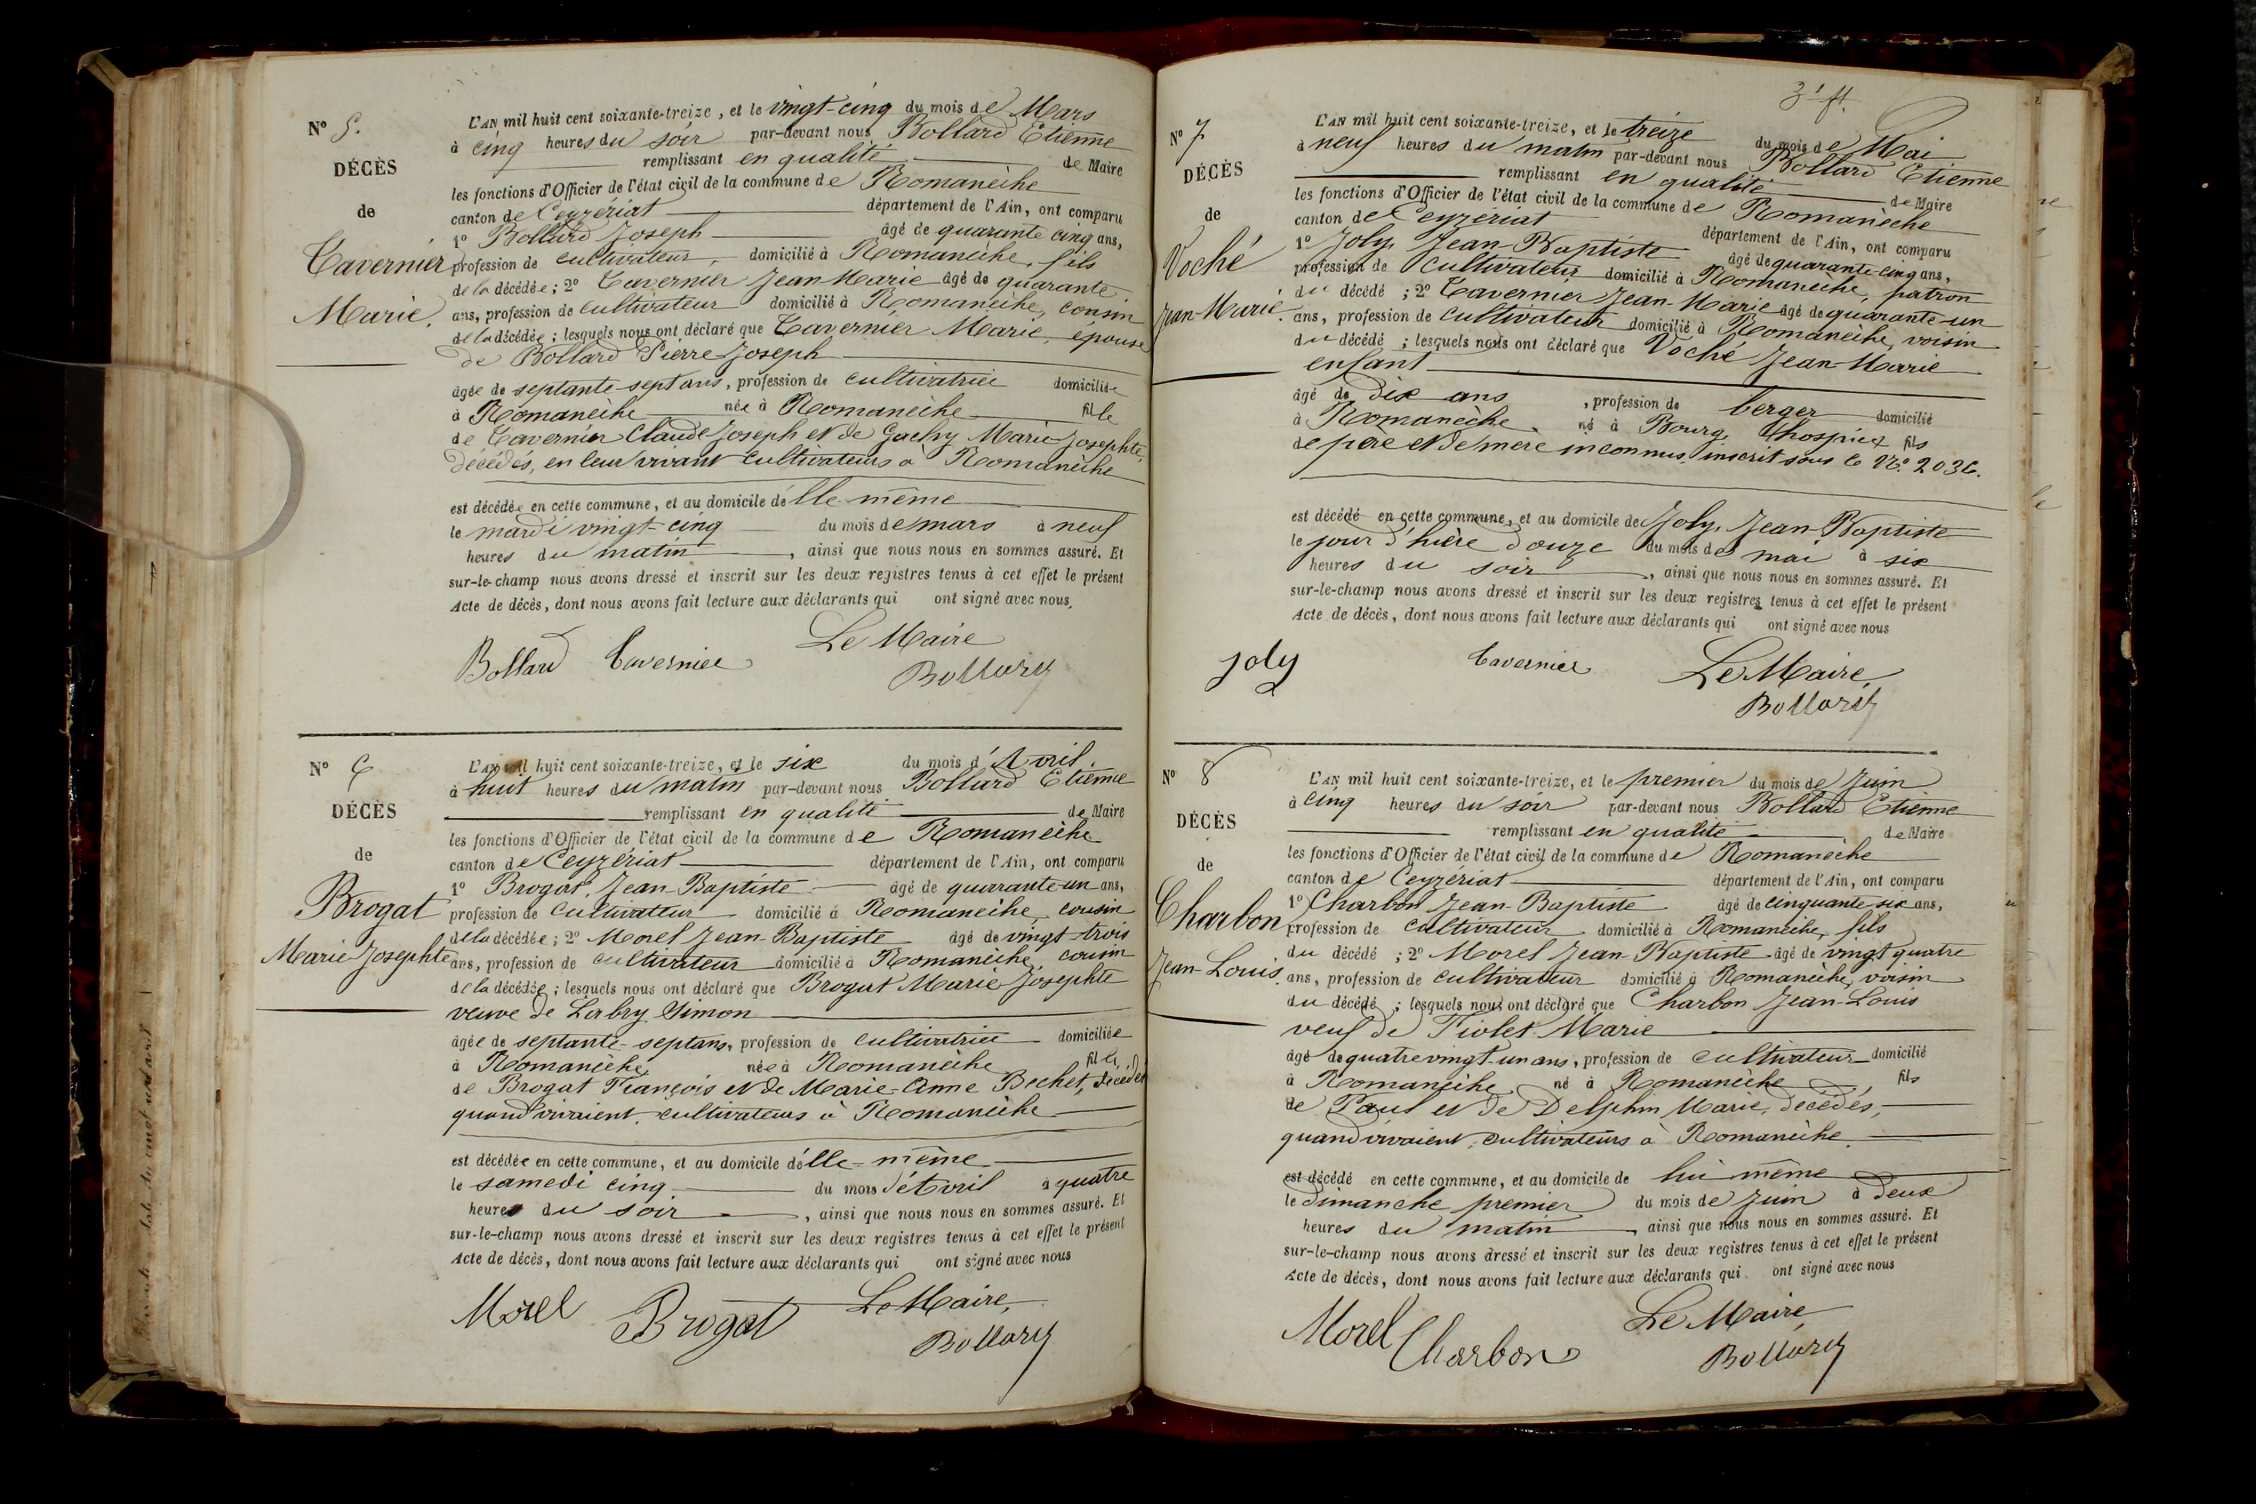 N° 5.
DÉCÈS
de
Tavernier
Marie.
L'AN mil huit cent soixante-treize, et le vingt-cinq du mois de Mars
à cinq heures du soir par-devant nous Bollard Etienne
remplissant en qualité de Maire
les fonctions d'Officier de l'état civil de la commune de Romanèche
canton de Ceyzériat département de l'Ain, ont comparu
1° Bollard Joseph âgé de quarante cinq ans,
profession de cultivateur, domicilié à Romanèche, fils
de la décédée; 2° Tavernier Jean Marie âgé de quarante
ans, profession de cultivateur domicilié à Romanèche, cousin
de la décédée; lesquels nous ont déclaré que Tavernier Marie, épouse
de Bollard Pierre Joseph
âgée de septante-sept ans, profession de cultivatrice domiciliée
à Romanèche née à Romanèche fille
de Tavernier Claude Joseph et de Marie Josephte,
décédés, en leur vivant cultivateurs à Romanèche
est décédée en cette commune, et au domicile d'elle-même
le mardi vingt-cinq du mois de mars à neuf
heures du matin, ainsi que nous nous en sommes assuré. Et
sur-le-champ nous avons dressé et inscrit sur les deux registres tenus à cet effet le présent
Acte de décès, dont nous avons fait lecture aux déclarants qui ont signé avec nous.
Bollard Tavernier Le Maire
Bollard
N° 6
DÉCÈS
de
Brogat
Marie Josephte
L'AN mil huit cent soixante-treize, et le six du mois d'Avril.
à huit heures du matin par-devant nous Bollard Etienne
remplissant en qualité de Maire
les fonctions d'Officier de l'état civil de la commune de Romanèche
canton de Ceyzériat département de l'Ain, ont comparu
1° Brogat Jean Baptiste âgé de quarante-un ans,
profession de cultivateur domicilié à Romanèche, cousin
de la décédée; 2° Morel Jean-Baptiste âgé de vingt-trois
ans, profession de cultivateur domicilié à Romanèche, cousin
de la décédée; lesquels nous ont déclaré que Brogat Marie Josephte
veuve de Simon
âgée de septante-sept ans, profession de cultivatrice domiciliée
à Romanèche, née à Romanèche fille
de Brogat François et de Marie-Anne Bochet, décédés
quand vivaient, cultivateurs à Romanèche
est décédée en cette commune, et au domicile d'elle-même
le samedi cinq du mois d'Avril à quatre
heures du soir, ainsi que nous nous en sommes assuré. Et
sur-le-champ nous avons dressé et inscrit sur les deux registres tenus à cet effet le présent
Acte de décès, dont nous avons fait lecture aux déclarants qui ont signé avec nous
Morel Brogat Le Maire,
Bollard
3e ft.
N° 7
DÉCÈS
de
Voché
Jean-Marie.
L'AN mil huit cent soixante-treize, et le treize du mois de Mai
à neuf heures du matin par-devant nous Bollard Etienne
remplissant en qualité de Maire
les fonctions d'Officier de l'état civil de la commune de Romanèche
canton de Ceyzériat département de l'Ain, ont comparu
1° Joly, Jean-Baptiste âgé de quarante-cinq ans,
profession de cultivateur domicilié à Romanèche, patron
du décédé; 2° Tavernier Jean-Marie âgé de quarante-un
ans, profession de cultivateur domicilié à Romanèche, voisin
du décédé; lesquels nous ont déclaré que Voché Jean-Marie
enfant
âgé de dix ans, profession de berger domicilié
à Romanèche né à Bourg, (hospice) fils
de père et de mère inconnus, inscrit sous le N° 2036.
est décédé en cette commune, et au domicile de Joly, Jean-Baptiste
le jour d'hière douze du mois de mai à six
heures du soir, ainsi que nous nous en sommes assuré. Et
sur-le-champ nous avons dressé et inscrit sur les deux registres tenus à cet effet le présent
Acte de décès, dont nous avons fait lecture aux déclarants qui ont signé avec nous
joly Tavernier Le Maire,
Bollard
N° 8
DÉCÈS
de
Charbon
Jean-Louis.
L'AN mil huit cent soixante-treize, et le premier du mois de Juin
à cinq heures du soir par-devant nous Bollard Etienne
remplissant en qualité de Maire
les fonctions d'Officier de l'état civil de la commune de Romanèche
canton de Ceyzériat département de l'Ain, ont comparu
1° Charbon Jean-Baptiste âgé de cinquante-six ans,
profession de cultivateur domicilié à Romanèche, fils
du décédé; 2° Morel Jean-Baptiste âgé de vingt quatre
ans, profession de cultivateur domicilié à Romanèche, voisin
du décédé; lesquels nous ont déclaré que Charbon Jean-Louis
veuf de Fiolet Marie
âgé de quatre vingt-un ans, profession de cultivateur domicilié
à Romanèche, né à Romanèche fils
de Paul et de Delphin Marie, décédés,
quand vivaient, cultivateurs à Romanèche.
est décédé en cette commune, et au domicile de lui-même
le dimanche premier du mois de Juin à deux
heures du matin ainsi que nous nous en sommes assuré. Et
sur-le-champ nous avons dressé et inscrit sur les deux registres tenus à cet effet le présent
Acte de décès, dont nous avons fait lecture aux déclarants qui ont signé avec nous
Morel Charbon Le Maire,
Bollard